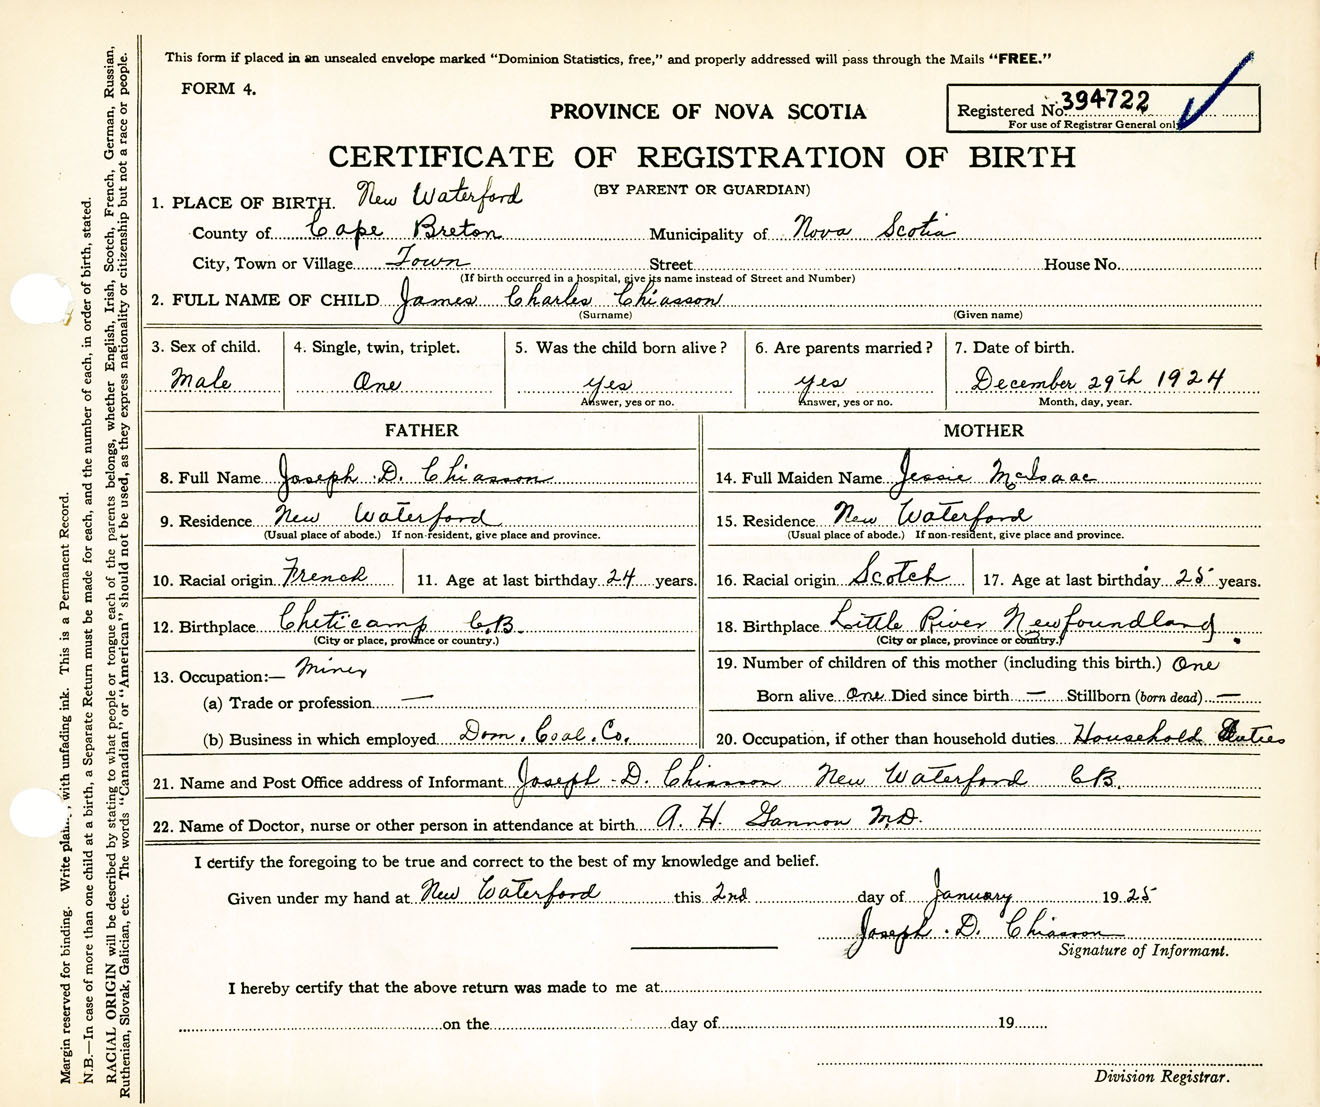 This form if placed in an unsealed envelope marked "Dominion Statistics, free," and properly addressed will pass through the Mails "FREE."
FORM 4.
PROVINCE OF NOVA SCOTIA
Registered No. 394722
For use of Registrar General only
CERTIFICATE OF REGISTRATION OF BIRTH
(BY PARENT OR GUARDIAN)
1. PLACE OF BIRTH. New Waterford
County of Cape Breton Municipality of Nova Scotia
City, Town or Village Town Street House No.
(If birth occurred in a hospital, give its name instead of Street and Number)
2. FULL NAME OF CHILD James Charles Chiasson
(Surname) (Given name)
3. Sex of child. 4. Single, twin, triplet. 5. Was the child born alive? 6. Are parents married? 7. Date of birth.
Male One yes yes December 29th 1924
Answer, yes or no. Answer, yes or no. Month, day, year.
FATHER MOTHER
8. Full Name Joseph D. Chiasson 14. Full Maiden Name Jessie McIsaac
9. Residence New Waterford 15. Residence New Waterford
(Usual place of abode.) If non-resident, give place and province. (Usual place of abode.) If non-resident, give place and province.
10. Racial origin French 11. Age at last birthday 24 years. 16. Racial origin Scotch 17. Age at last birthday 25 years.
12. Birthplace Cheticamp C.B. 18. Birthplace Little River Newfoundland
(City or place, province or country.) (City or place, province or country.)
13. Occupation:— Miner 19. Number of children of this mother (including this birth.) One
(a) Trade or profession — Born alive One Died since birth — Stillborn (born dead) —
(b) Business in which employed Dom. Coal. Co. 20. Occupation, if other than household duties Household Duties
21. Name and Post Office address of Informant Joseph D. Chiasson New Waterford CB.
22. Name of Doctor, nurse or other person in attendance at birth A. H. Gannon M.D.
I certify the foregoing to be true and correct to the best of my knowledge and belief.
Given under my hand at New Waterford this 2nd day of January 1925
Joseph . D. Chiasson
Signature of Informant.
I hereby certify that the above return was made to me at
on the day of 19
Division Registrar.
Margin reserved for binding. Write plain, with unfading ink. This is a Permanent Record.
N.B.—In case of more than one child at a birth, a Separate Return must be made for each, and the number of each, in order of birth, stated.
RACIAL ORIGIN will be described by stating to what people or tongue each of the parents belongs, whether English, Irish, Scotch, French, German, Russian,
Ruthenian, Slovak, Galician, etc. The words "Canadian" or "American" should not be used, as they express nationality or citizenship but not a race or people.